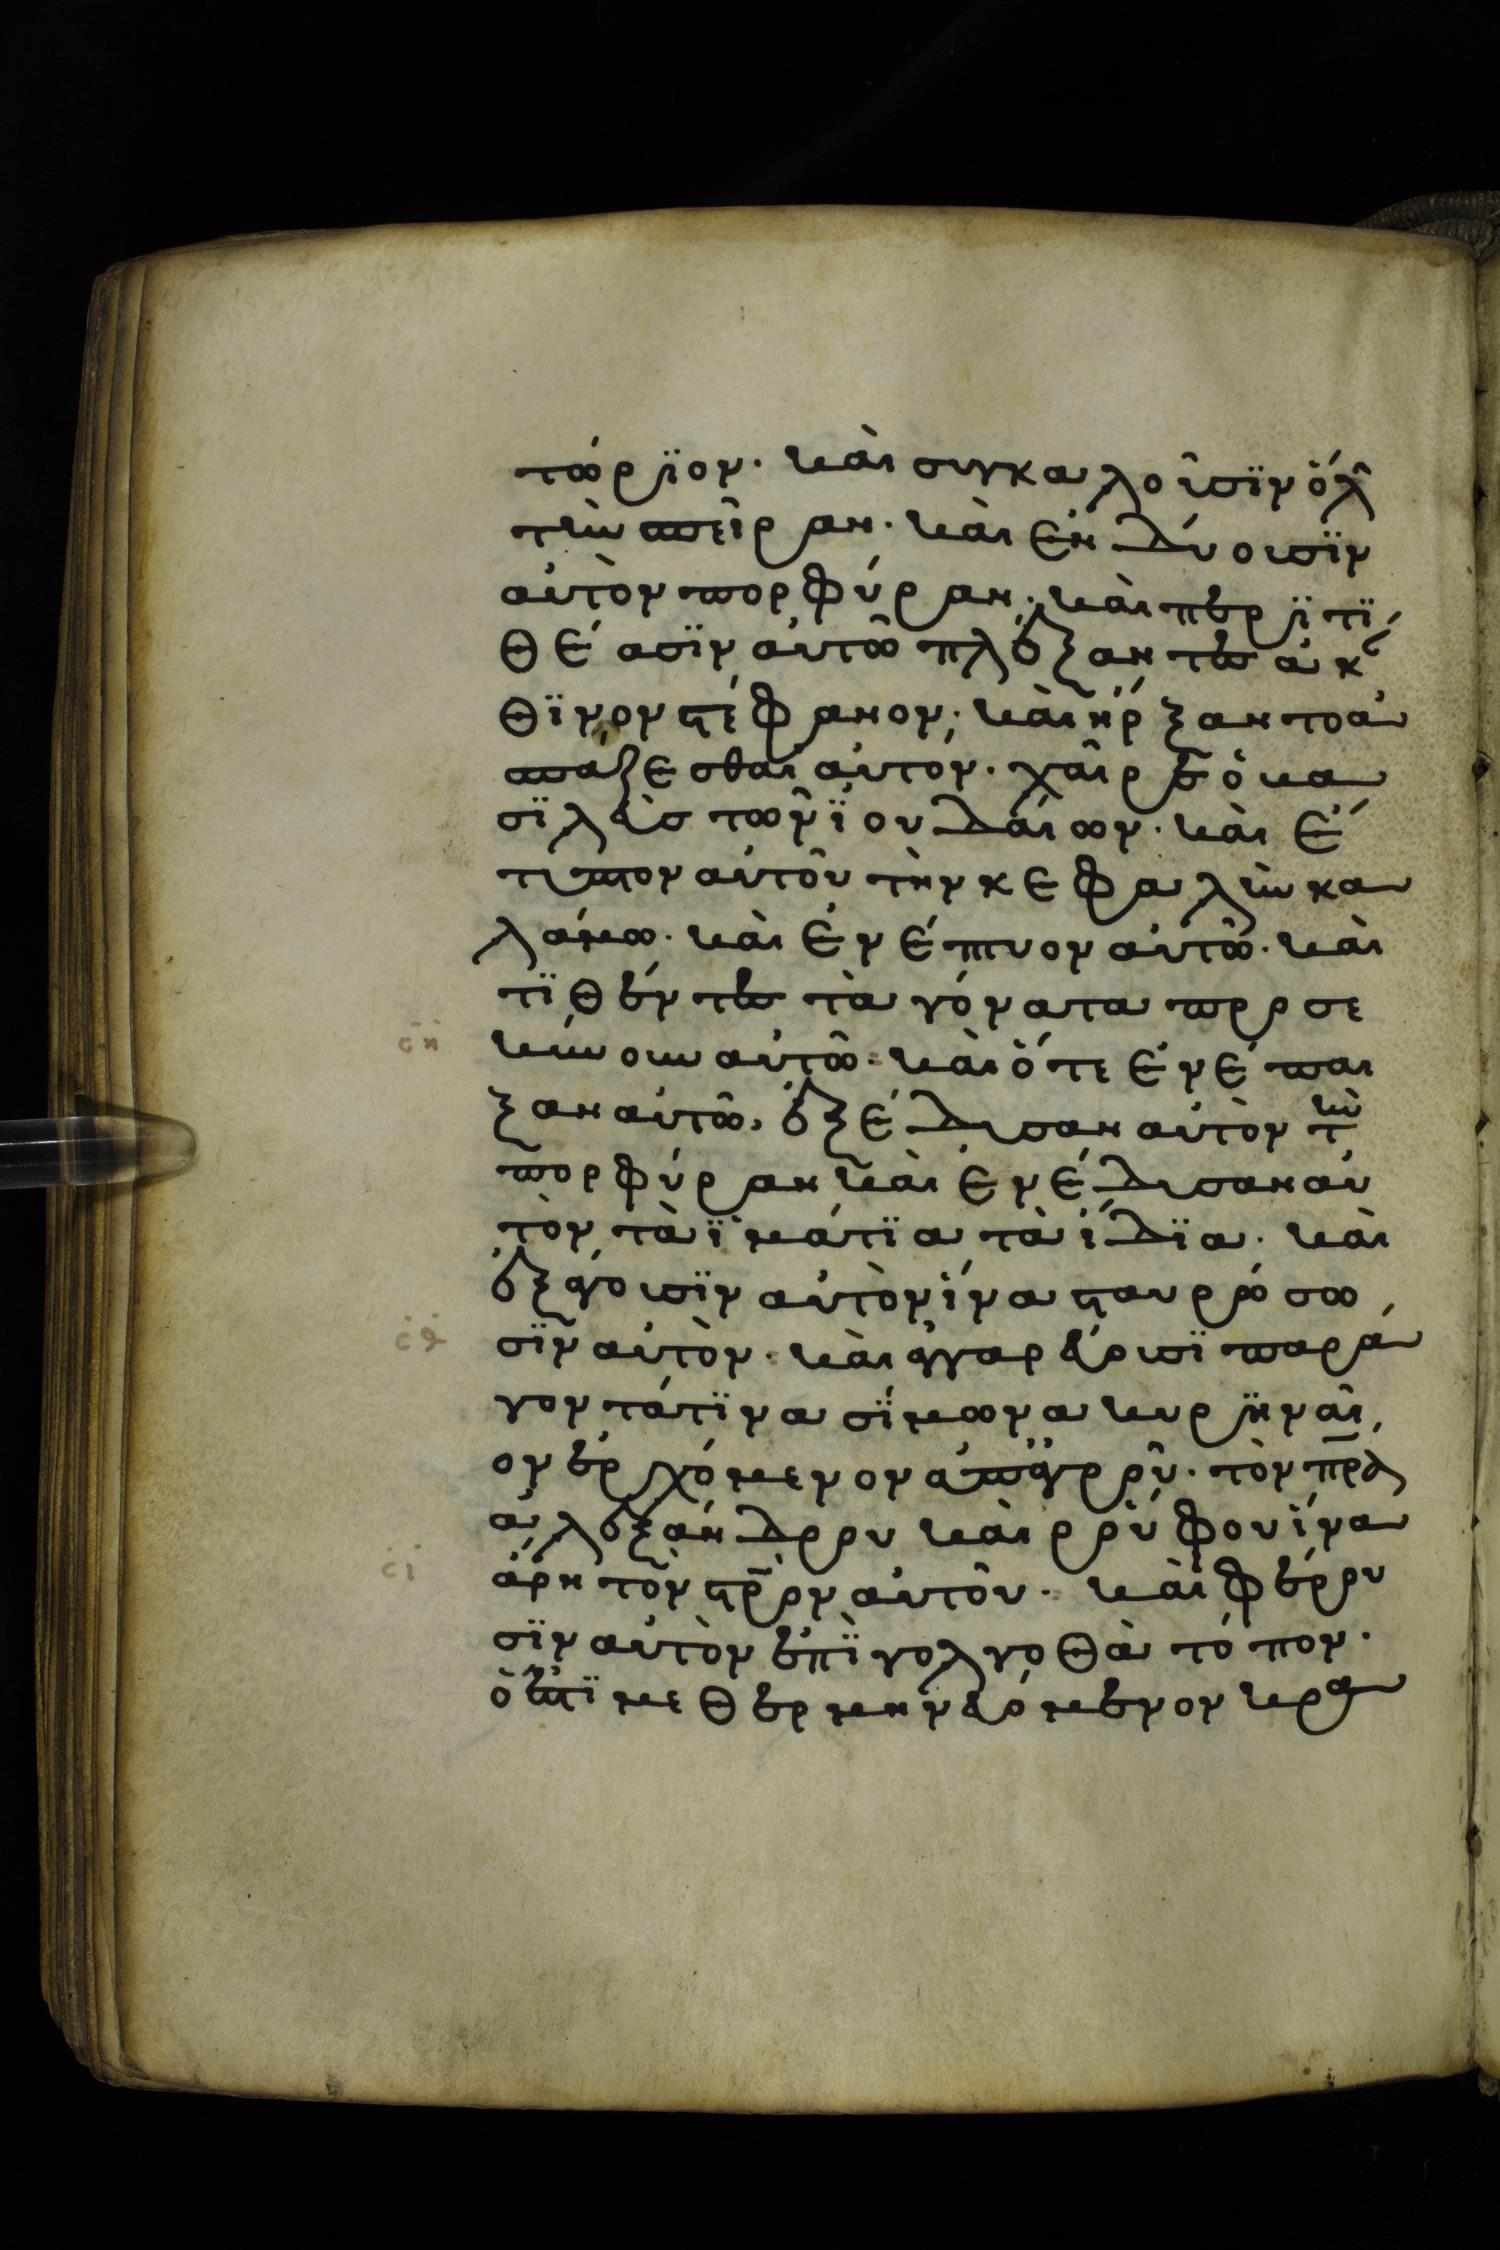 τώριον· καὶ συγκαλοῦσϊν ὅλ
τὴν σπεῖραν· καὶ ἐνδύουσϊν
αὐτὸν πορφύραν· καὶ περϊτϊ
θέασϊν αὐτῶ πλέξαντες ἀκάν
θϊνον στέφανον· καὶ ἤρξαντο ἀ
σπάζεσθαι αὐτόν· χαῖρε ὁ βα
σϊλεὺς τῶν ϊουδαίων· καὶ ἔ
τυπτον αὐτοῦ τὴν κεφαλὴν κα
λάμω· καὶ ἐνέπτυον αὐτῶ· καὶ
τϊθέντες τὰ γόνατα προσε
ση κύνουν αὐτῶ· καὶ ὅτε ἐνέπαι
ξαν αὐτῶ, ἐξέδυσαν αὐτὸν τὴν
πορφύραν καὶ ἐνέδυσαν αὐ
τὸν τὰ ϊμάτϊα τὰ ἴδϊα· καὶ
ἐξάγουσϊν αὐτὸν ἵνα σταυρώσω
σθ σϊν αὐτὸν· καὶ ἀγγαρεύουσϊ παρά
γοντά τϊνα σΐμωνα κυρϊναῖ
ον ἐρχόμενον ἀπ ἀγροῦ· τὸν πρα
ἀλεξάνδρου καὶ ῥούφου ἵνα
σι ἄρη τὸν στρον αὐτοῦ· καὶ φέρου
σϊν αὐτὸν ἐπῒ γολγοθὰ τόπον·
ὅ ἐστϊ μεθερμηνευόμενον κρα